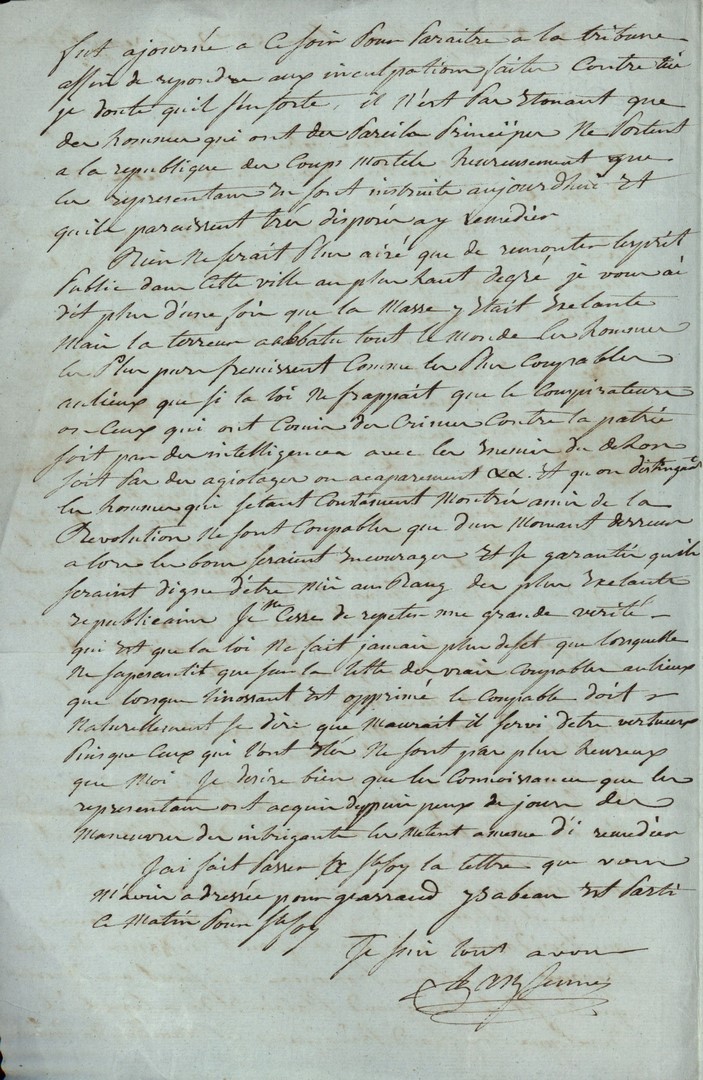 fut ajournée a ce soir pour paraitre a la tribune
affin de repondre aux inculpations faites contre lui
je doute quil sen sorte, il n'est pas etonant que
des hommes qui ont des pareils principes ne portent
a la republique des coups mortels heureusement que
les representans en sont instruits aujourdhui et
quils paraissent très disposés a y remedier
Rien ne serait plus aisé que de remonter lesprit
public dans cette ville au plus haut degré je vous ai
dit plus d'une fois que la masse y etait exelante
mais la terreur a abbatu tout le monde les hommes
les plus purs fremissent comme les plus coupables
aulieux que si la loi ne frappait que le conspirateurs
ou ceux qui ont comis des crimes contre la patrie
soit par des intelligences avec les enemis du dehors
soit par des agiotages ou acaparement &&. et qu'on distingua
les hommes qui setant constament montrés amis de la
Revolution ne sont coupables que d'un momant derreur
alors les bons seraient encourages et je garantis quils
seraint digne d'etre mis au rang des plus exelants
republicains Je ne cesse de repeter une grande verité
qui est que la loi ne fait jamais plus defet que lorsquelle
ne sapesantit que sur la tette des vrais coupables aulieux
que lorsque linossant est opprimé le coupable doit
naturellement se dire que maurait il servi detre vertueux
puisque ceux qui l'ont eté ne sont pas plus heureux
que moi Je desire bien que les connoissances que les
representans ont acquis depuis peux de jours des
maneuvres des intrigants les metent a meme d'i remedier
J'ai fait passer a Ste foy la lettre que vous
m'avés adressée pour gearraud ysabeau est parti
ce matin pour Ste foy
Je suis tout a vous